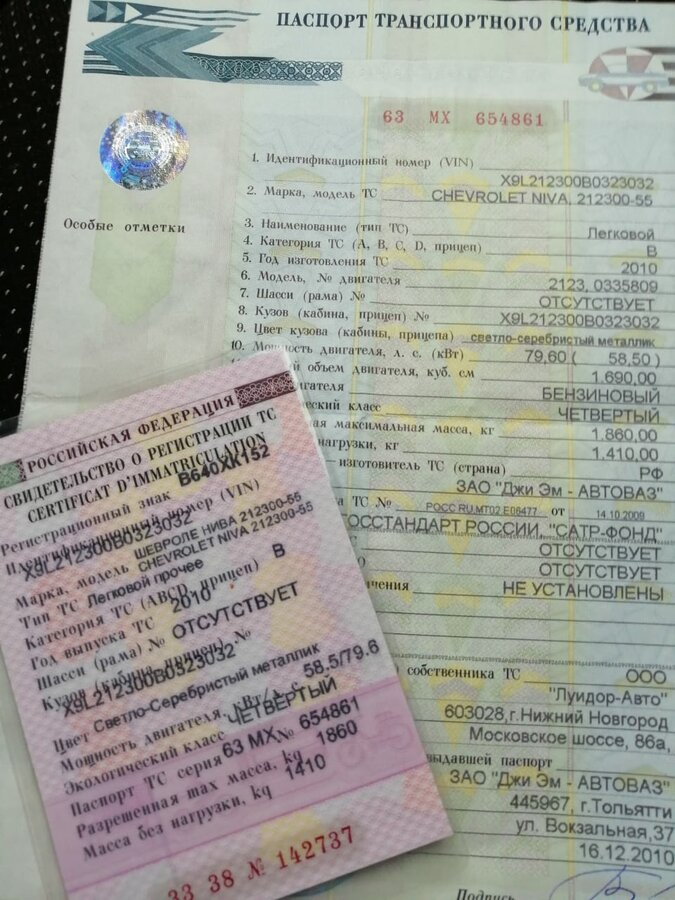 ПАСПОРТ ТРАНСПОРТНОГО СРЕДСТВА
63 МХ 654861
1. Идентификационный номер (VIN) X9L212300B0323032
2. Марка, модель ТС CHEVROLET NIVA, 212300-55
Особые отметки
3. Наименование (тип ТС) Легковой
4. Категория ТС (А, В, С, D, прицеп) В
5. Год изготовления ТС 2010
6. Модель, № двигателя 2123, 0335809
7. Шасси (рама) № ОТСУТСТВУЕТ
8. Кузов (кабина, прицеп) № X9L212300B0323032
9. Цвет кузова (кабины, прицепа) светло-серебристый металлик
10. Мощность двигателя, л. с. (кВт) 79,60 ( 58,50 )
объем двигателя, куб. см 1.690,00
БЕНЗИНОВЫЙ
класс ЧЕТВЕРТЫЙ
максимальная масса, кг 1.860,00
нагрузки, кг 1.410,00
изготовитель ТС (страна) РФ
ЗАО "Джи Эм - АВТОВАЗ"
ТС № РОСС RU.MT02 E06477 от 14.10.2009
"САТР-ФОНД"
ОТСУТСТВУЕТ
ОТСУТСТВУЕТ
НЕ УСТАНОВЛЕНЫ
собственника ТС ООО
"Луидор-Авто"
603028,г.Нижний Новгород
Московское шоссе, 86а,
паспорт
ЗАО "Джи Эм - АВТОВАЗ"
445967, г.Тольятти
ул. Вокзальная,37
16.12.2010
Подпись
РОССИЙСКАЯ ФЕДЕРАЦИЯ
СВИДЕТЕЛЬСТВО О РЕГИСТРАЦИИ ТС
CERTIFICAT D'IMMATRICULATION
Регистрационный знак В640ХК152
Идентификационный номер (VIN)
X9L212300B0323032
Марка, модель ШЕВРОЛЕ НИВА 212300-55
CHEVROLET NIVA 212300-55
Тип ТС Легковой прочее
Категория ТС (ABCD, прицеп) В
Год выпуска ТС 2010
Шасси (рама) № ОТСУТСТВУЕТ
Кузов (кабина, прицеп) №
X9L212300B0323032
Цвет Светло-Серебристый металлик
Мощность двигателя, кВт/л. с. 58.5/79.6
Экологический класс ЧЕТВЕРТЫЙ
Паспорт ТС серия 63 МХ № 654861
Разрешенная max масса, kg 1860
Масса без нагрузки, kg 1410
33 38 № 142737